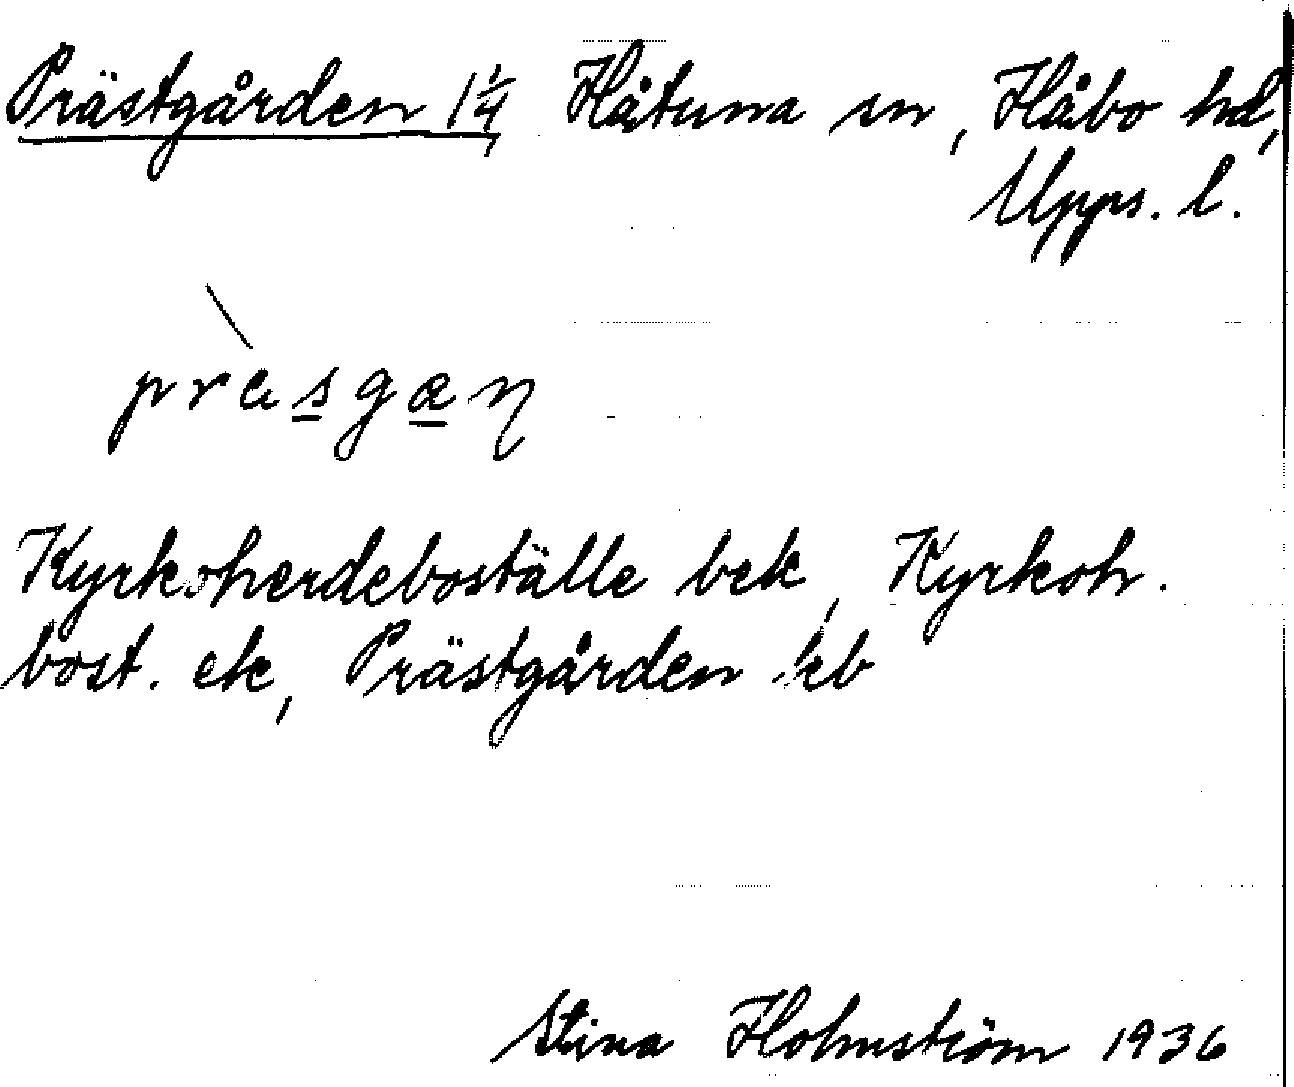 Prästgården 1 1/4 Håtuna sn, Håbo hd,
Upps. l.
Kyrkoherdeboställe bek, Kyrkoh.
bost. ek, Prästgården kb
Stina Holmström 1936